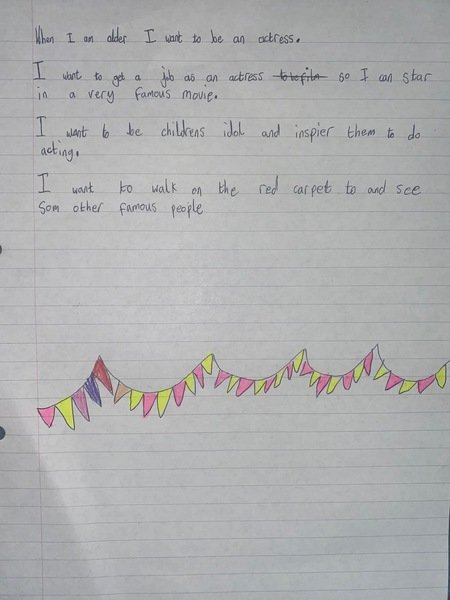 When I am older I want to be an actress.
I want to get a job as an actress to be film so I can star
in a very famous movie.
I want to be childrens idol and inspier them to do
acting.
I want to walk on the red carpet to and see
Som other famous people